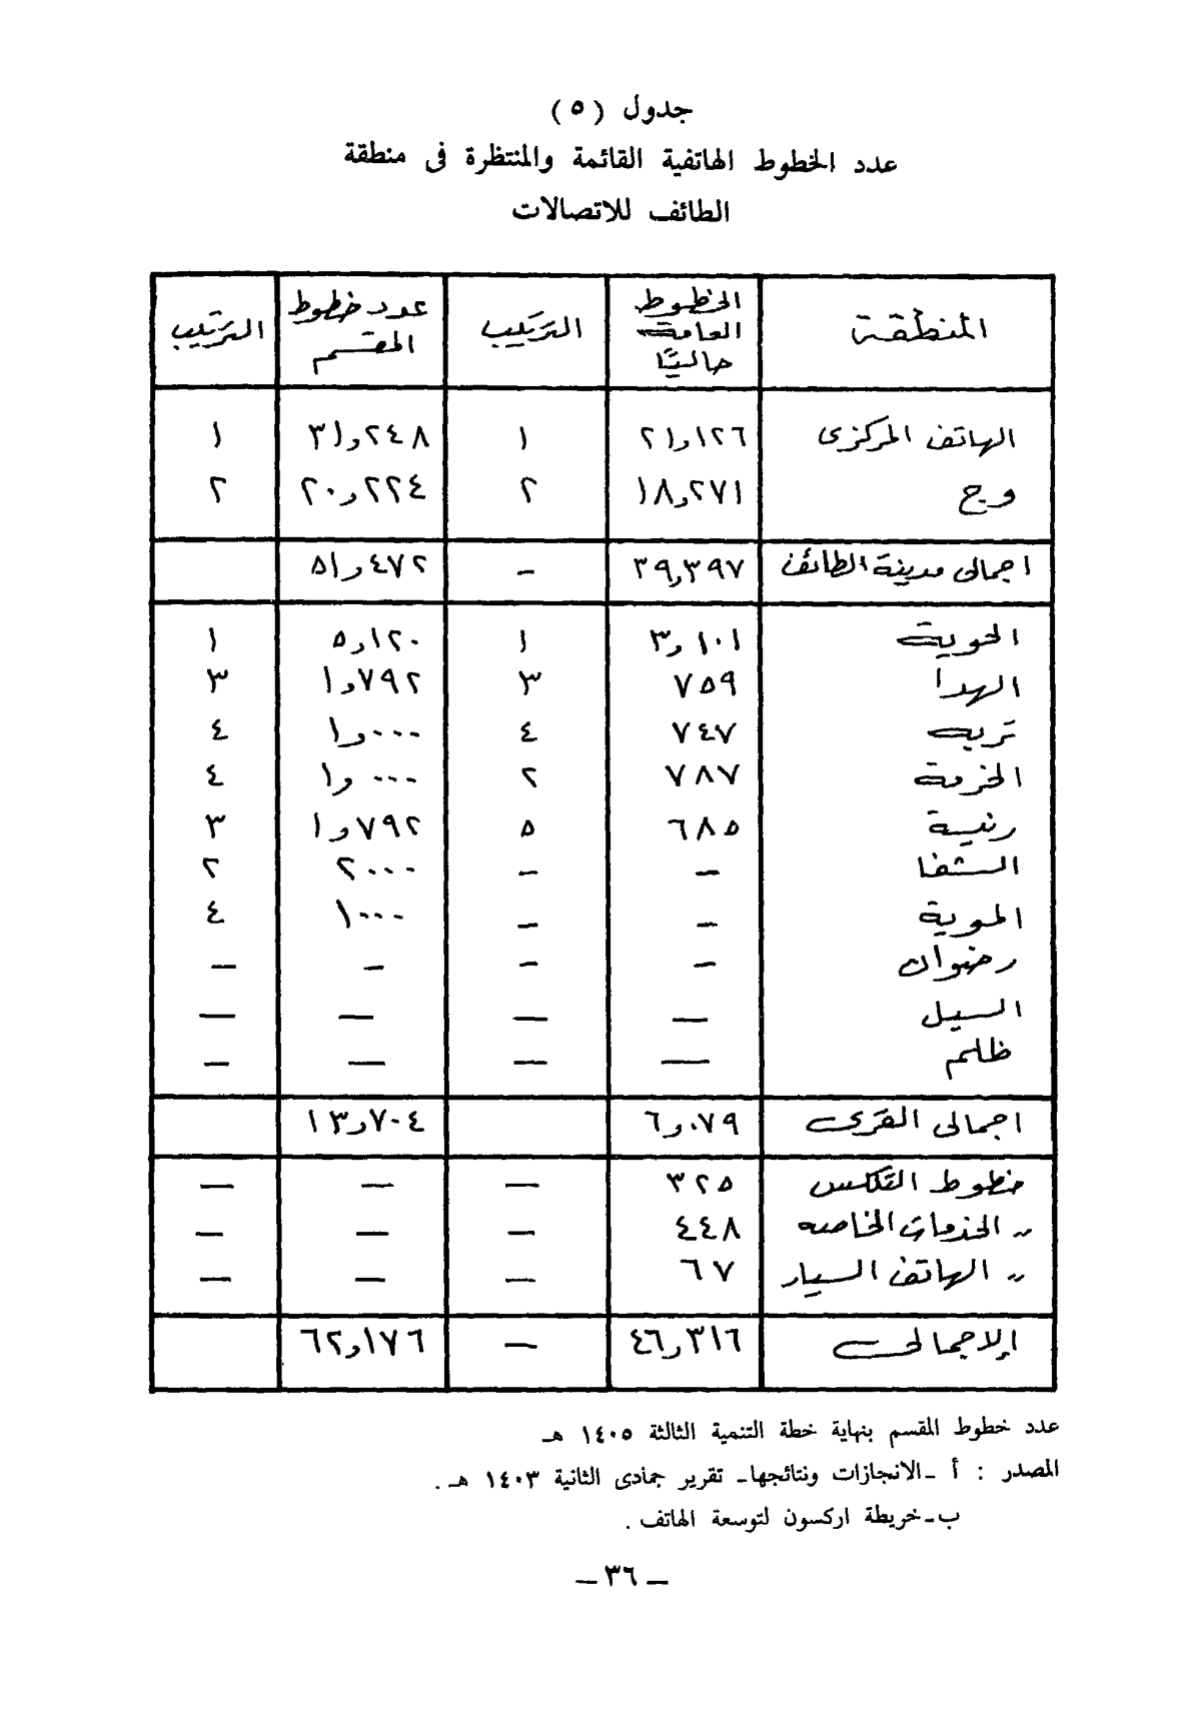 جدول (٥)
عدد الخطوط الهاتفية القائمة والمنتظرة فى منطقة
الطائف للاتصالات
المنطقة الخطوط العامة حاليًا الترتيب عدد خطوط المقسم الترتيب
الهاتف المركزى ٢١٫١٢٦ ١ ٣١٫٢٤٨ ١
وج ١٨٫٢٧١ ٢ ٢٠٫٢٢٤ ٢
اجمالى مدينة الطائف ٣٩٫٣٩٧ - ٥١٫٤٧٢
الحوية ٣٫١٠١ ١ ٥٫١٢٠ ١
الهدا ٧٥٩ ٣ ١٫٧٩٢ ٣
تربه ٧٤٧ ٤ ١٫٠٠٠ ٤
الخرمة ٧٨٧ ٢ ١٫٠٠٠ ٤
رنية ٦٨٥ ٥ ١٫٧٩٢ ٣
الشفا - - ٢٠٠٠ ٢
الموية - - ١٠٠٠ ٤
رضوان - - - -
السيل - - - -
ظلم - - - -
اجمالى القرى ٦٫٠٧٩ ١٣٫٧٠٤
خطوط التلكس ٣٢٥ - - -
〃 الخدمات الخاصه ٤٤٨ - - -
〃 الهاتف السيار ٦٧ - - -
الإجمالى ٤٦٫٣١٦ - ٦٢٫١٧٦
عدد خطوط المقسم بنهاية خطة التنمية الثالثة ١٤٠٥ هـ
المصدر : أ ـ الانجازات ونتائجها ـ تقرير جمادى الثانية ١٤٠٣ هـ .
ب ـ خريطة اركسون لتوسعة الهاتف .
ـ ٣٦ ـ